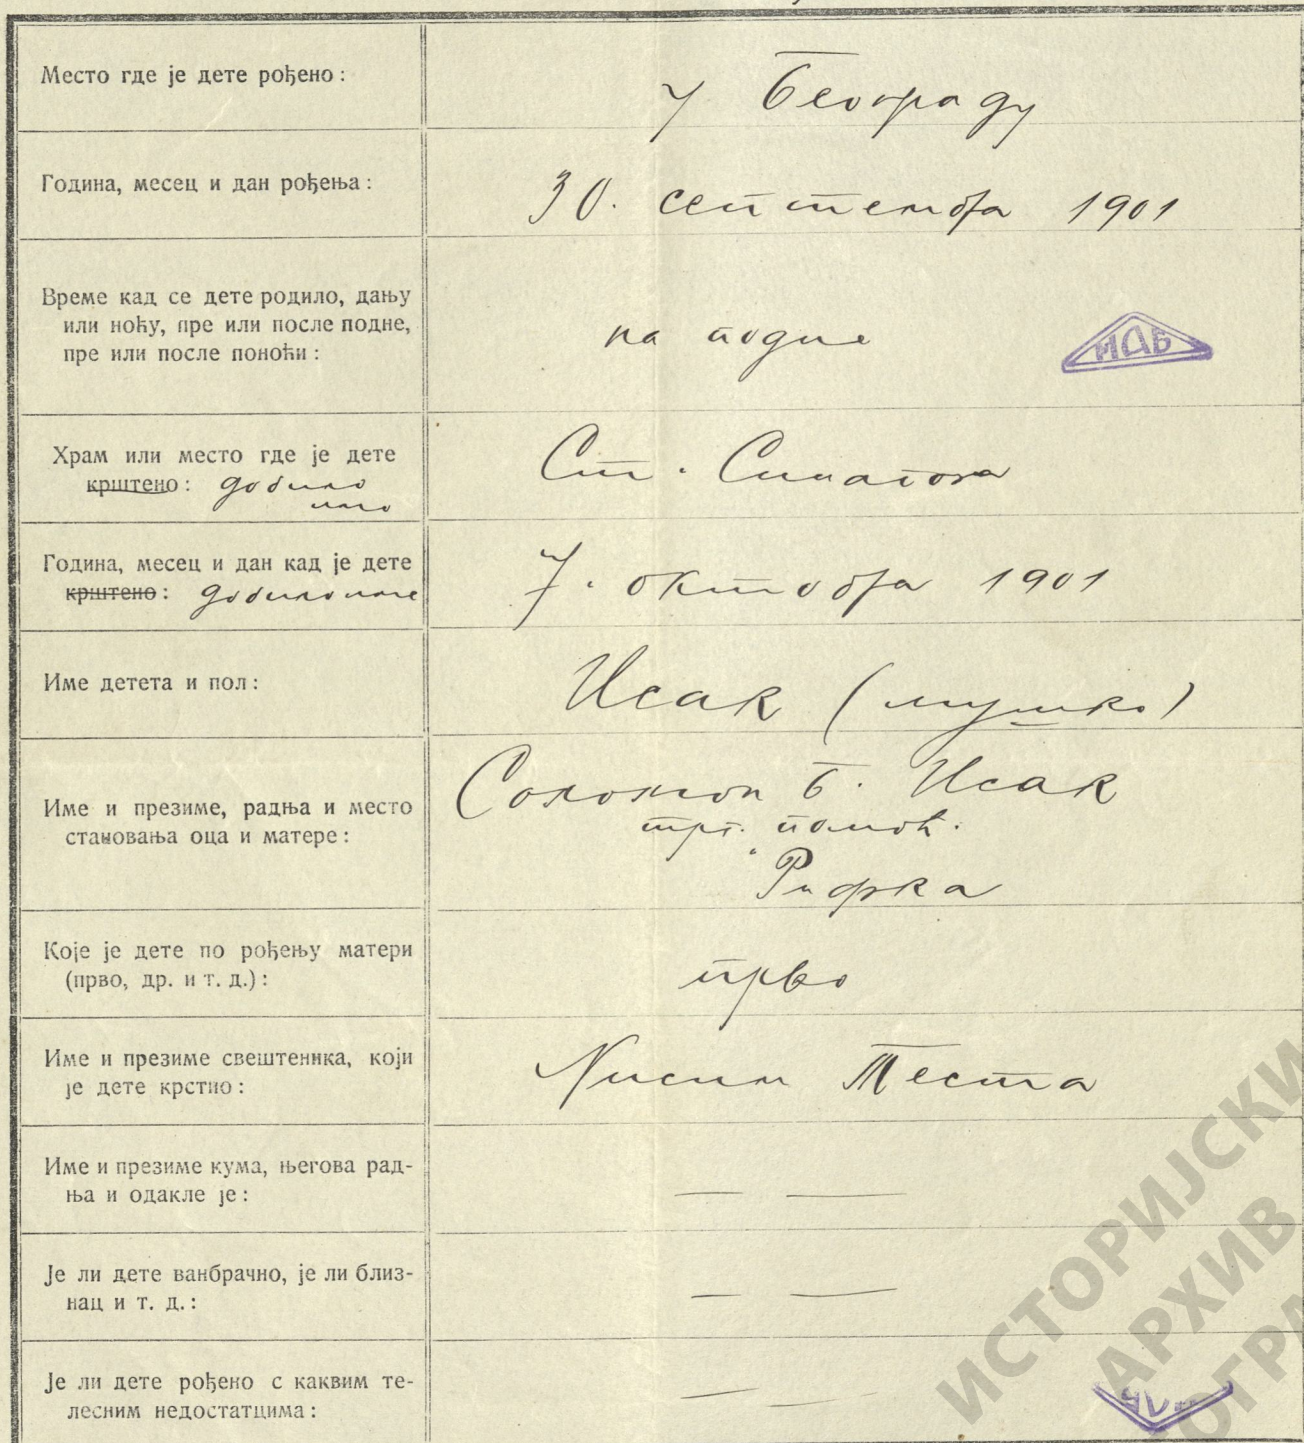 Место где је дете рођено:
у Београду
Година, месец и дан рођења:
30. септембра 1901
Време кад се дете родило, дању
или ноћу, пре или после подне,
пре или после поноћи:
на подне
ИАБ
Храм или место где је дете
крштено: добило
име
Ст. Синагога
Година, месец и дан кад је дете
крштено: добило име
7. октобра 1901
Име детета и пол:
Исак (мушко)
Име и презиме, радња и место
становања оца и матере:
Соломон Б. Исак
трг. помоћ.
Рифка
Које је дете по рођењу матери
(прво, др. и т. д.):
прво
Име и презиме свештеника, који
је дете крстио:
Нисим Теста
Име и презиме кума, његова рад-
ња и одакле је:
— —
Је ли дете ванбрачно, је ли близ-
нац и т. д.:
— —
Је ли дете рођено с каквим те-
лесним недостатцима:
— —
ИСТОРИЈСКИ
АРХИВ